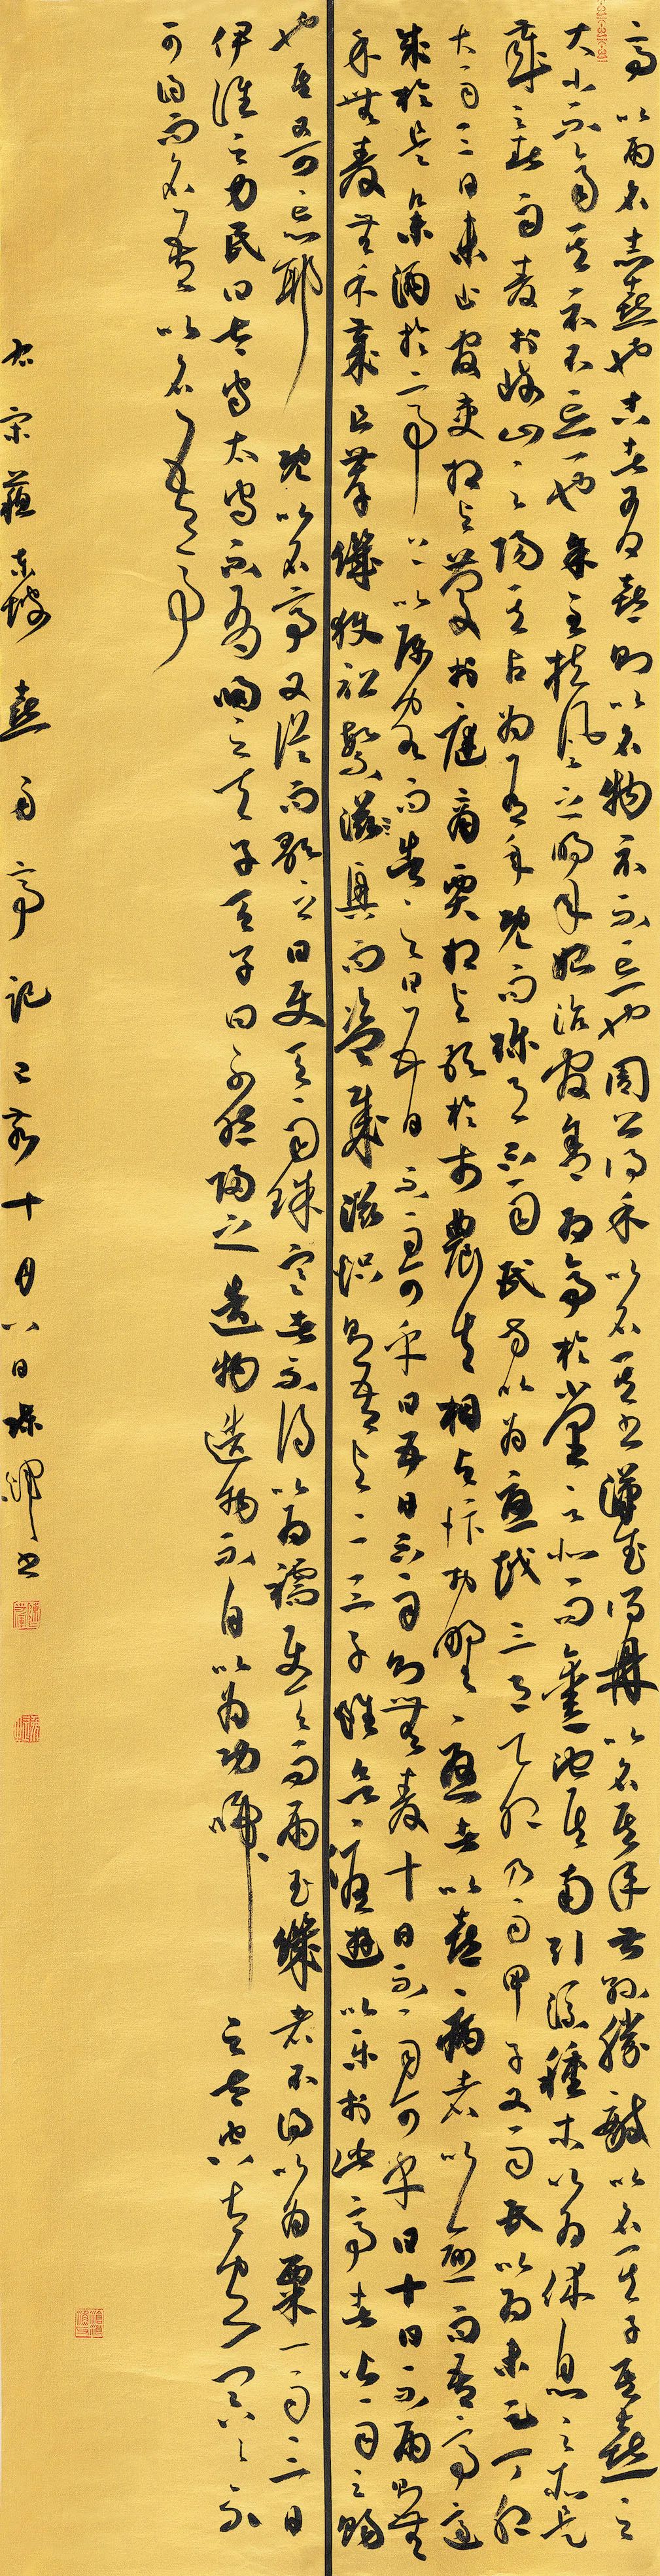 亭以雨名志喜也古者有喜則以名物示不忘也周公得禾以名其書漢武得鼎以名其年叔孫勝敵以名其子其喜之
大小不齊其示不忘一也余至扶風之明年始治官舍為亭於堂之北而鑿池其南引流種木以為休息之所是
歲之春雨麥於岐山之陽其占為有年既而彌月不雨民方以為憂越三月乙卯乃雨甲子又雨民以為未足丁卯
大雨三日止官吏相與慶於庭商賈相與歌於市農夫相與忭於野憂者以喜病者以愈而吾亭適
成於是舉酒於亭上以屬客而告之曰五日不雨可乎曰五日不雨則無麥十日不雨可乎曰十日不雨則無
禾無麥無禾歲且薦饑獄訟繁滋興而盜賊滋熾則吾與二三子雖欲優遊以樂於此亭者皆雨之賜
也其又可忘耶 既以名亭又從而歌之曰使天而雨珠寒者不得以為襦使天而雨玉饑者不得以為粟一雨三日
伊誰之力民曰太守太守不有歸之天子天子曰不然歸之造物造物不自以為功歸之太空太空冥冥不
可得而名吾以名吾亭
右宋蘇東坡喜雨亭記己亥十月八日書